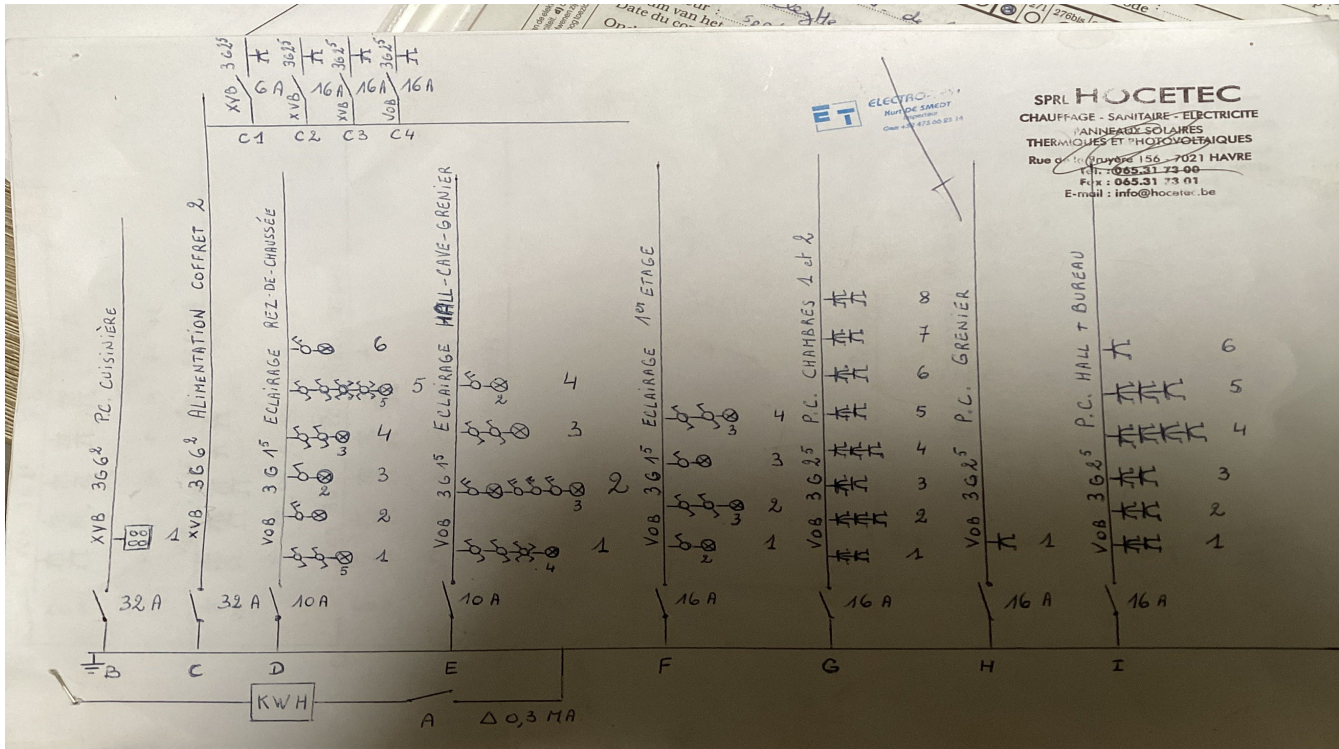 276bis
XVB 3G2⁵
3G2⁵
3G2⁵
3G2⁵
6A
XVB
16A
XVB
16A
VOB
16A
C1 C2 C3 C4
ET
ELECTRO-TEST
Kurt DE SMEDT
SPRL HOCETEC
CHAUFFAGE - SANITAIRE - ELECTRICITE
PANNEAUX SOLAIRES
THERMIQUES ET PHOTOVOLTAIQUES
Rue de la Bruyère 156 - 7021 HAVRE
Tél. : 065.31 73 00
Fax : 065.31 73 01
E-mail : info@hocetec.be
XVB 3G6² P.C. CUISINIÈRE
1
32 A
B
XVB 3G6² ALIMENTATION COFFRET 2
32 A
C
VOB 3G1⁵ ECLAIRAGE REZ-DE-CHAUSSÉE
6
5
5
4
3
3
2
2
1
5
10A
D
VOB 3G1⁵ ECLAIRAGE HALL-CAVE-GRENIER
4
2
3
2
3
1
4
10A
E
VOB 3G1⁵ ECLAIRAGE 1er ETAGE
4
3
3
2
3
1
2
16 A
F
VOB 3G2⁵ P.C. CHAMBRES 1 et 2
8
7
6
5
4
3
2
1
16 A
G
VOB 3G2⁵ P.C. GRENIER
1
16 A
H
VOB 3G2⁵ P.C. HALL + BUREAU
6
5
4
3
2
1
16 A
I
KWH
A
Δ 0,3 MA